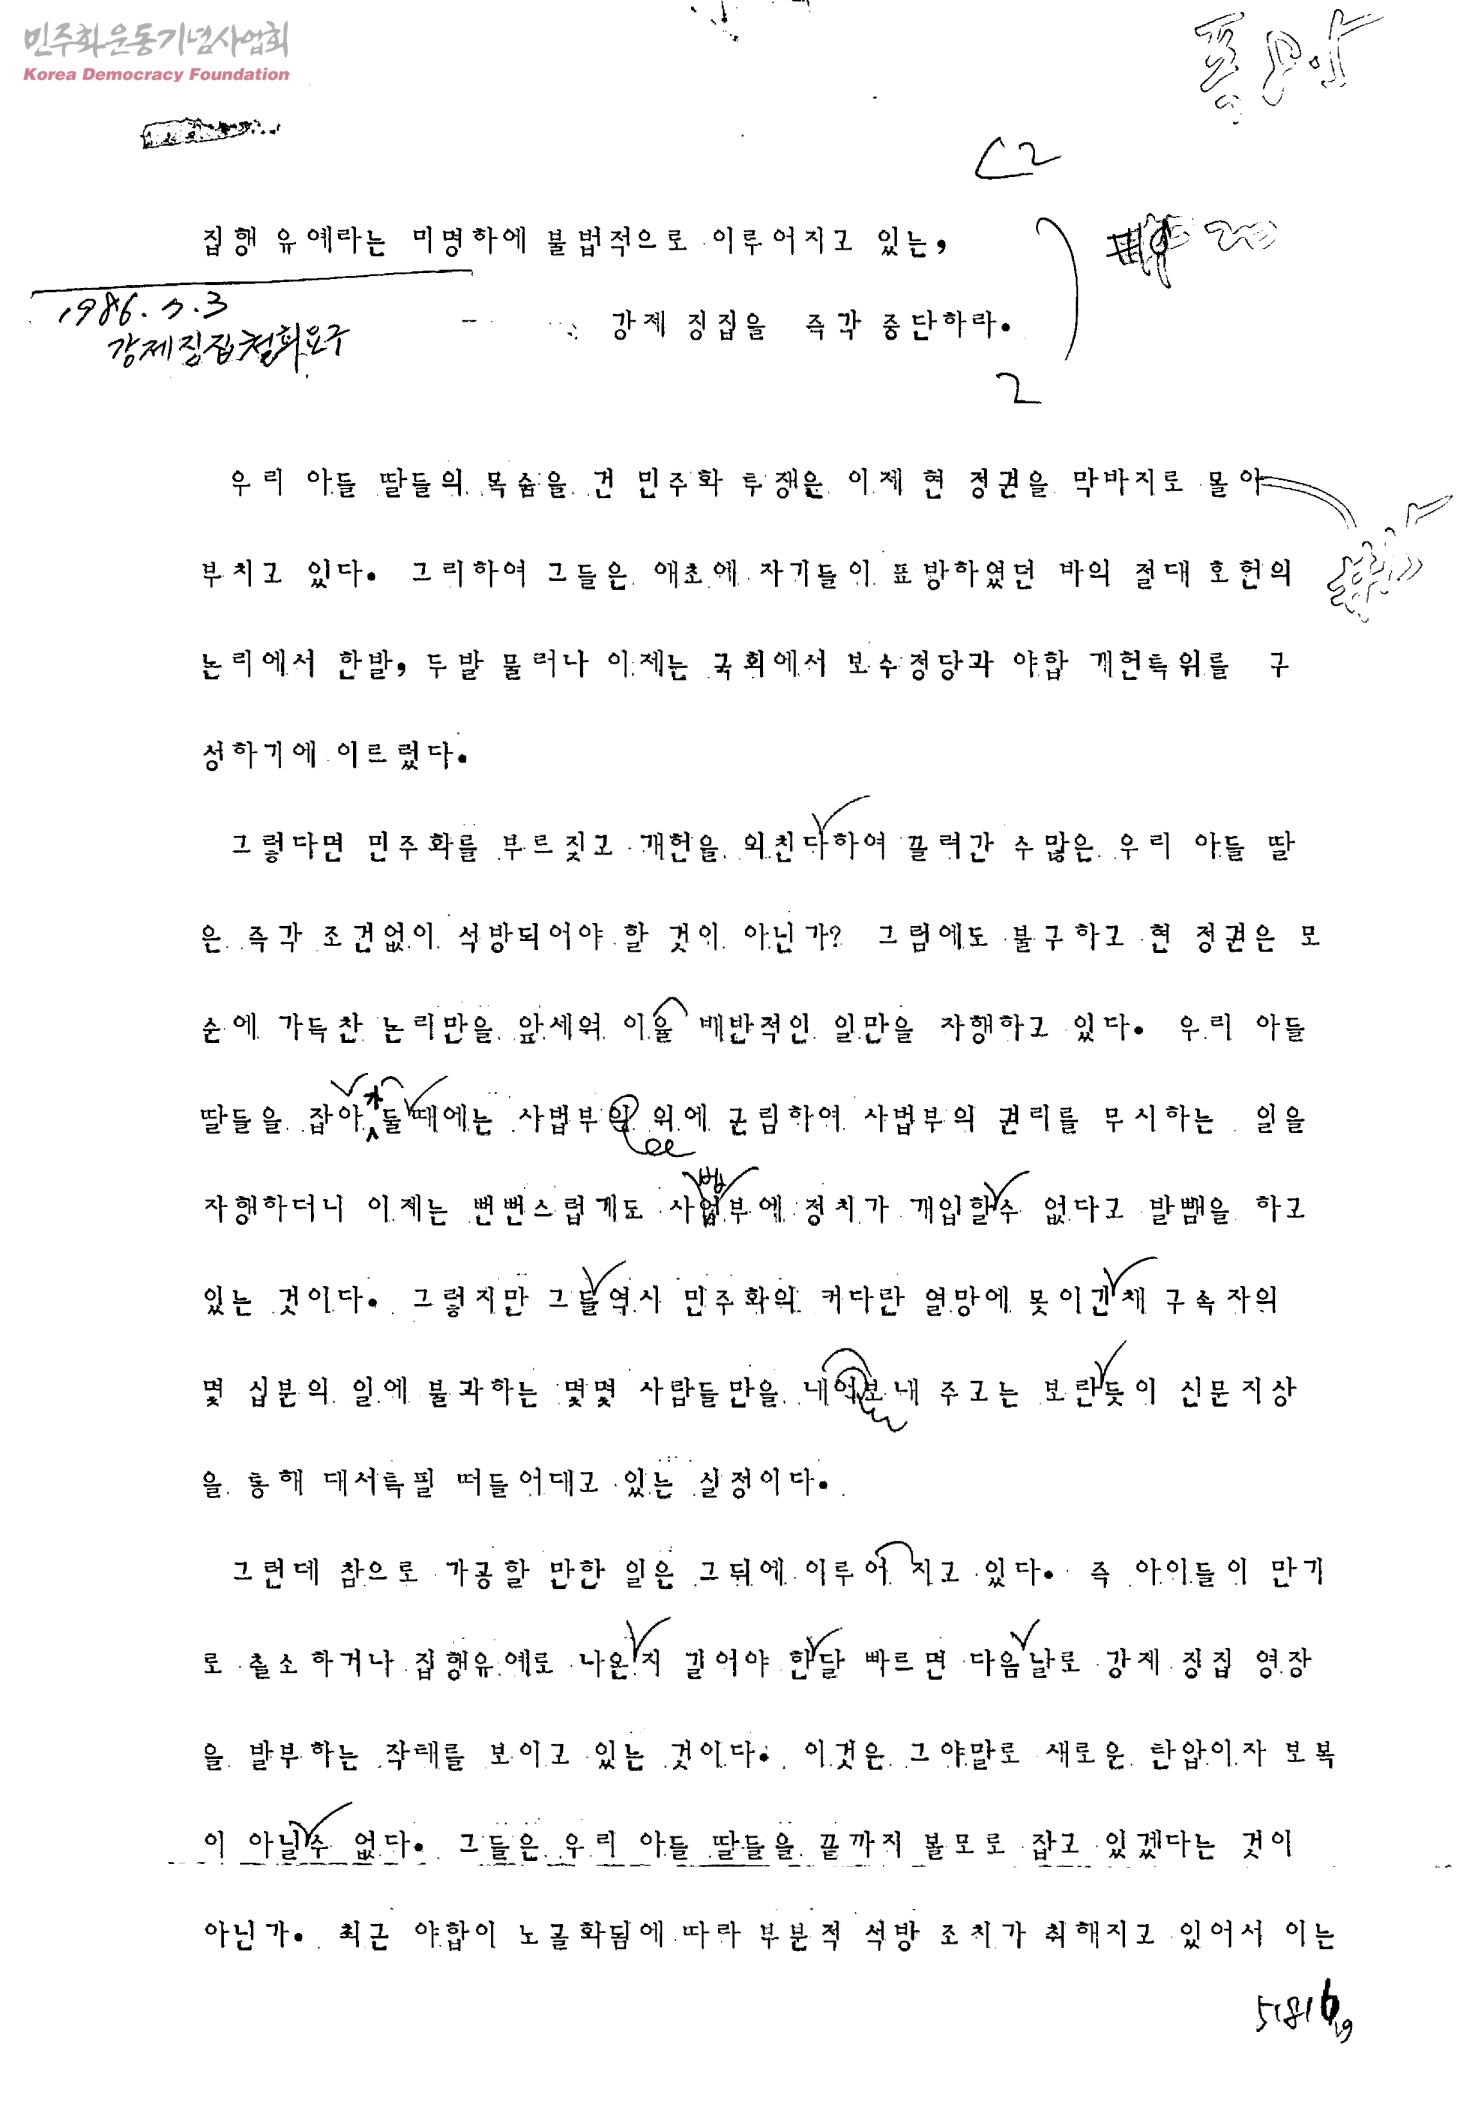 민주화운동기념사업회
Korea Democracy Foundation
C2
집행 유예라는 미명하에 불법적으로 이루어지고 있는,
1986. 7. 3
강제 징집을 즉각 중단하라.
강제징집철회요구
2
우리 아들 딸들의 목숨을 건 민주화 투쟁은 이제 현 정권을 막바지로 몰아
부치고 있다. 그리하여 그들은 애초에 자기들이 표방하였던 바의 절대 호헌의
논리에서 한발, 두발 물러나 이제는 국회에서 보수정당과 야합 개헌특위를 구
성하기에 이르렀다.
그렇다면 민주화를 부르짖고 개헌을 외친다하여 끌려간 수많은 우리 아들 딸
은 즉각 조건없이 석방되어야 할 것이 아닌가? 그럼에도 불구하고 현 정권은 모
순에 가득찬 논리만을 앞세워 이율 배반적인 일만을 자행하고 있다. 우리 아들
딸들을 잡아 가둘때에는 사법부의 위에 군림하여 사법부의 권리를 무시하는 일을
자행하더니 이제는 뻔뻔스럽게도 사법부에 정치가 개입할수 없다고 발뺌을 하고
있는 것이다. 그렇지만 그들역시 민주화의 커다란 열망에 못이긴채 구속자의
몇 십분의 일에 불과하는 몇몇 사람들만을 내어보내 주고는 보란듯이 신문지상
을 통해 대서특필 떠들어대고 있는 실정이다.
그런데 참으로 가공할 만한 일은 그뒤에 이루어 지고 있다. 즉 아이들이 만기
로 출소하거나 집행유예로 나온지 길어야 한달 빠르면 다음날로 강제 징집 영장
을 발부하는 작태를 보이고 있는 것이다. 이것은 그야말로 새로운 탄압이자 보복
이 아닐수 없다. 그들은 우리 아들 딸들을 끝까지 볼모로 잡고 있겠다는 것이
아닌가. 최근 야합이 노골화됨에 따라 부분적 석방 조치가 취해지고 있어서 이는